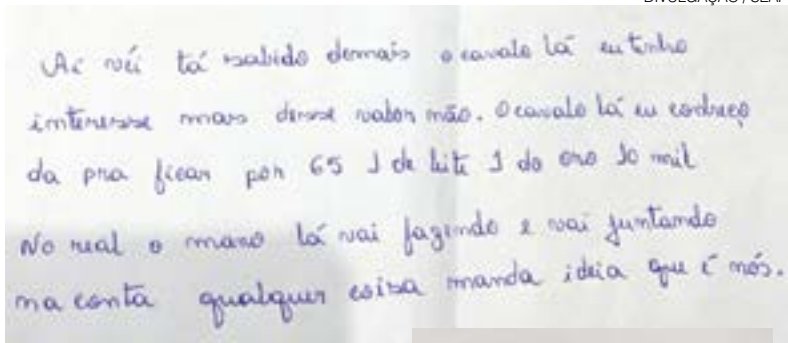 DIVULGAÇÃO / SEAP
Aí véi tá sabido demais o cavalo lá eu tenho
interesse mais desse valor não. O cavalo lá eu conheço
da pra ficar por 65 1 de leite 1 do oro 10 mil
No real o mano lá vai fazendo e vai juntando
na conta qualquer coisa manda ideia que é nós.